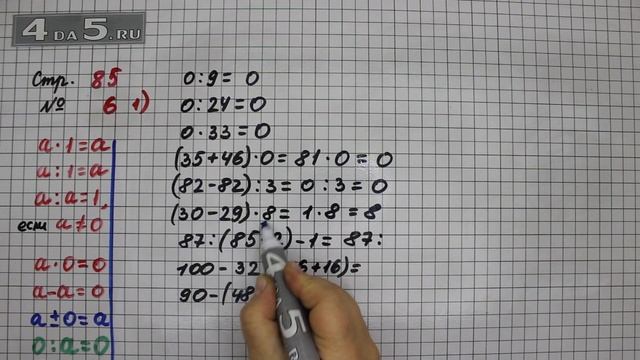 4 DA 5.RU
Стр. 85
№ 6 1)
a · 1 = a
a : 1 = a
a : a = 1,
если a ≠ 0
a · 0 = 0
a - a = 0
a ± 0 = a
0 : a = 0
0 : 9 = 0
0 : 24 = 0
0 · 33 = 0
(35 + 46) · 0 = 81 · 0 = 0
(82 - 82) : 3 = 0 : 3 = 0
(30 - 29) · 8 = 1 · 8 = 8
87 : (85 ) - 1 = 87 :
100 - 32 6 + 16) =
90 - (48
4 DA 5